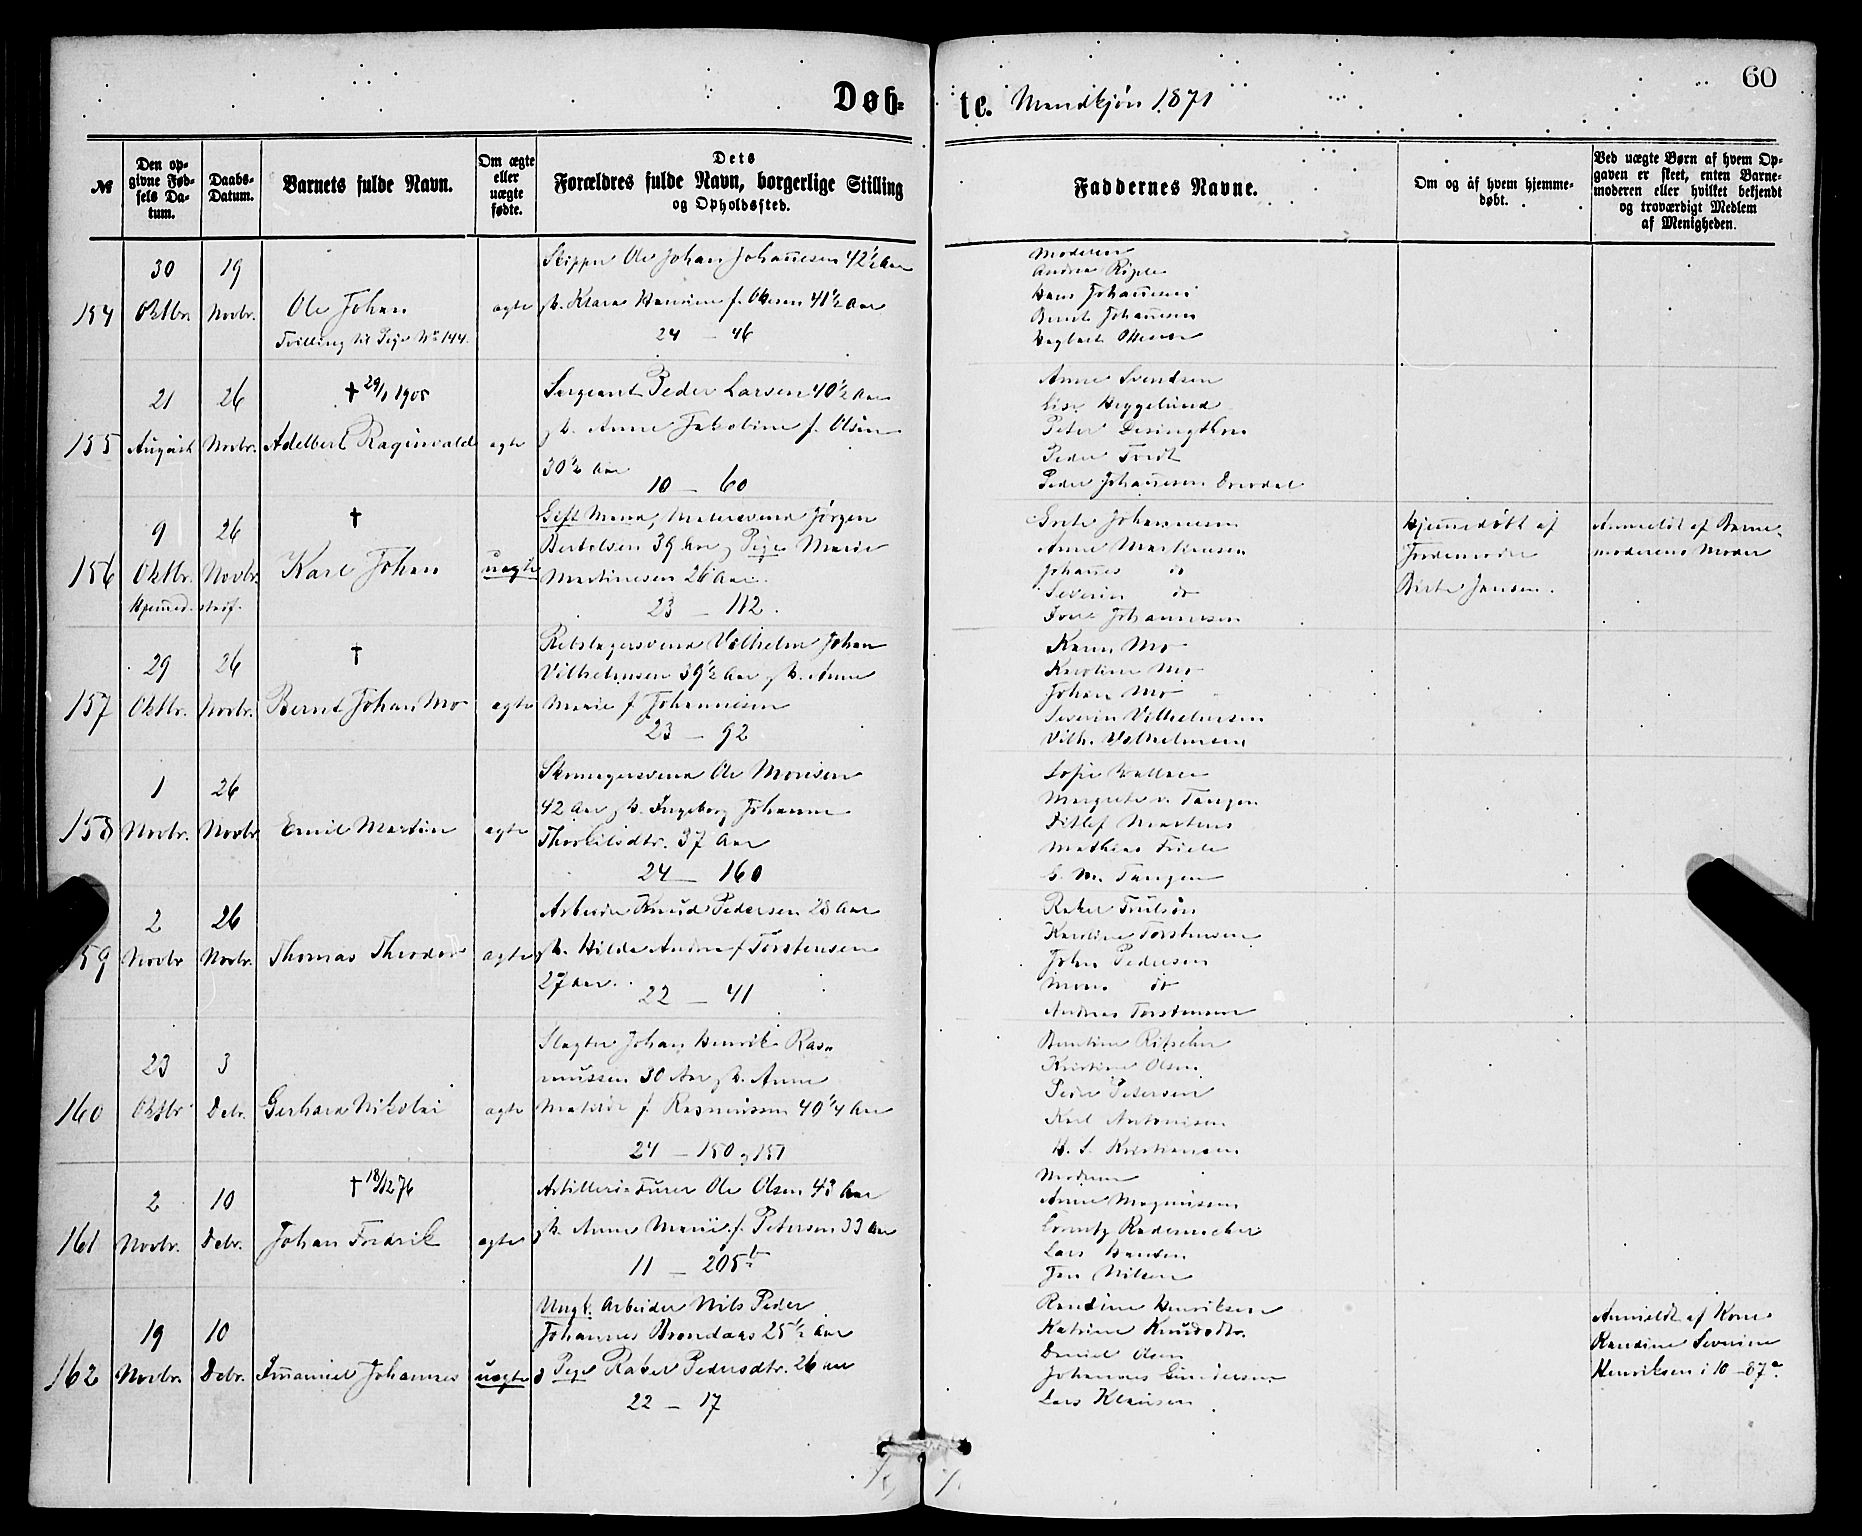 60
Døb-te. Mandkjøn 1871
№
Den opgivne Fødsels Datum.
Daabs-Datum.
Barnets fulde Navn.
Om ægte eller uægte fødte.
Dets Forældres fulde Navn, borgerlige Stilling og Opholdssted.
Faddernes Navne.
Om og af hvem hjemmedøbt.
Ved uægte Børn af hvem Opgaven er skeet, enten Barnemoderen eller hvilket bekjendt og troværdigt Medlem af Menigheden.
154
30 Oktbr.
19 Novbr.
Ole Johan
Tvilling til Pige No 144.
ægte
Skipper Ole Johan Johannesen 42½ Aar
h. Klara Hansine f. Olsen 41½ Aar
24 - 46
Moderen
Hans Johannesen
Bernt Johannesen
155
21 August
26 Novbr.
† 29/1 1905
Adelbert Raginvald
ægte
Sergeant Peder Larsen 40½ Aar
h. Anne Jakobine f. Olsen
30½ Aar
10 - 60
Anne Svendsen
Lise Heggelund
Peder Johannesen
156
9 Oktbr.
26 Novbr.
Hjemmed. stadf.
†
Karl Johan
uægte
Gift Mand, Malersvend Jørgen
Bertelsen 39 Aar, Pige Marie
Martinesen 26 Aar.
23 - 112.
Grete Johannesen
Anne Martinesen
Johannes do
Severin do
Iver Johannesen
Hjemmedøbt af
Jordemoder
Birte Jansen.
Anmeldt af Barne-
moderens Moder
157
29 Oktbr.
26 Novbr.
†
Bernt Johan Mo
ægte
Rebslagersvend Vilhelm Johan
Vilhelmsen 39½ Aar h. Anne
Marie f. Johannesen
23 - 92
Karen Mo
Karoline Mo
Johan Mo
Severin Vilhelmsen
Vilh. Vilhelmsen
158
1 Novbr.
26 Novbr.
Emil Martin
ægte
Skomagersvend Ole Monsen
42 Aar h. Ingeborg Johanne
Thorkilsdtr. 37 Aar
24 - 160
Sofie Wallace
Margrete v. Tangen
Ditlef Martens
Mathias Friele
G. M. Tangen
159
2 Novbr
26 Novbr.
Thomas Theodor
ægte
Arbeider Knud Pedersen 28 Aar
h. Hilda Andrea f. Torstensen
27 Aar.
22 - 41
Karoline Torstensen
John Pedersen
Mons do
Andreas Torstensen
160
23 Oktbr
3 Debr.
Gerhard Nikolai
ægte
Slagter Johan Henrik Ras-
mussen 30 Aar h. Anne
Matilde f. Rasmussen 40¼ Aar
24 - 150 og 151
Bentine Ritscher
Kristine Olsen
Peder Petersen
Karl Antonisen
H. S. Kristiansen
161
2 Novbr.
10 Debr.
† 18/12 76
Johan Fredrik
ægte
Artilleri-Furer Ole Olsen 43 Aar
h. Anne Marie f. Petersen 33 Aar
11 - 205b
Moderen
Anne Magnusen
Lorentz Rademacher
Lars Hansen
Jan Nilsen
162
19 Novbr.
10 Debr.
Immanuel Johannes
uægte
Ungk. Arbeider Nils Peder
Johannes Brondaas 25½ Aar
Pige Rakel Pedersdtr. 26 Aar
22 - 17
Randine Henriksen
Katrine Knudsdtr.
Daniel Olsen
Johannes Gundersen
Lars Klausen
Anmeldt af Kone
Randine Severine
Henriksen i 10 - 87a